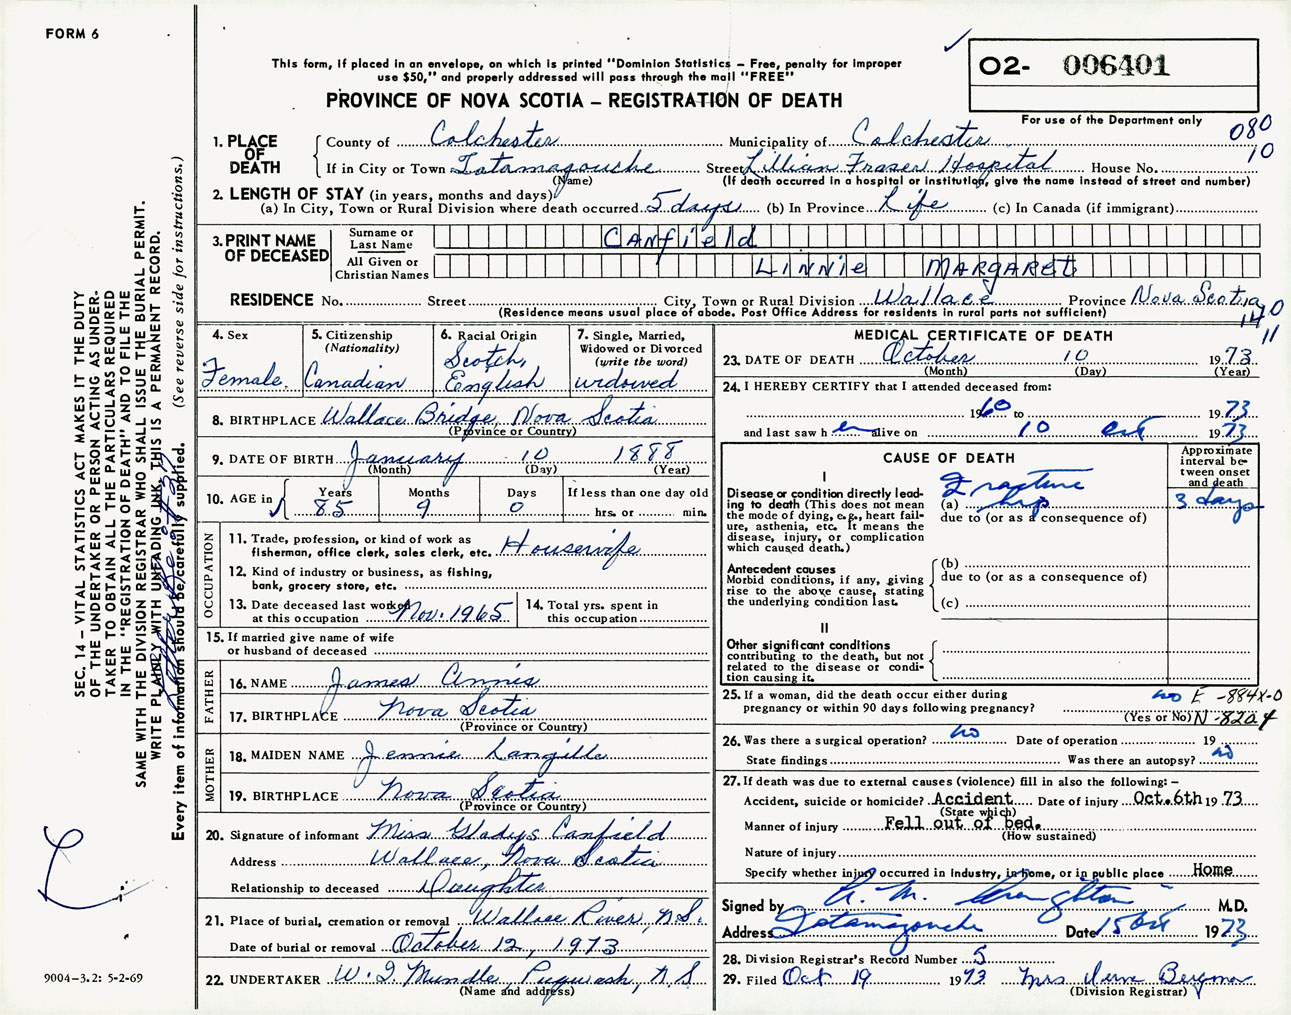 FORM 6
This form, if placed in an envelope, on which is printed "Dominion Statistics – Free, penalty for improper
use $50," and properly addressed will pass through the mail "FREE"
PROVINCE OF NOVA SCOTIA – REGISTRATION OF DEATH
O2- 006401
For use of the Department only
080
10
1. PLACE OF DEATH
County of Colchester Municipality of Colchester
If in City or Town Tatamagouche Street Lillian Fraser Hospital House No.
(Name) (If death occurred in a hospital or institution, give the name instead of street and number)
2. LENGTH OF STAY (in years, months and days)
(a) In City, Town or Rural Division where death occurred 5 days (b) In Province Life (c) In Canada (if immigrant)
3. PRINT NAME OF DECEASED
Surname or Last Name CANfield
All Given or Christian Names LINNIE MARGARET
RESIDENCE No. Street City, Town or Rural Division Wallace Province Nova Scotia
(Residence means usual place of abode. Post Office Address for residents in rural parts not sufficient)
11
4. Sex
Female.
5. Citizenship
(Nationality)
Canadian
6. Racial Origin
Scotch,
English
7. Single, Married,
Widowed or Divorced
(write the word)
widowed
8. BIRTHPLACE Wallace Bridge, Nova Scotia
(Province or Country)
9. DATE OF BIRTH January 10 1888
(Month) (Day) (Year)
10. AGE in
Years Months Days If less than one day old
85 9 0 hrs. or min.
OCCUPATION
11. Trade, profession, or kind of work as
fisherman, office clerk, sales clerk, etc. Housewife
12. Kind of industry or business, as fishing,
bank, grocery store, etc.
13. Date deceased last worked
at this occupation Nov. 1965
14. Total yrs. spent in
this occupation
15. If married give name of wife
or husband of deceased
FATHER
16. NAME James Annis
17. BIRTHPLACE Nova Scotia
(Province or Country)
MOTHER
18. MAIDEN NAME Jennie Langille
19. BIRTHPLACE Nova Scotia
(Province or Country)
20. Signature of informant Miss Gladys Canfield
Address Wallace, Nova Scotia
Relationship to deceased Daughter
21. Place of burial, cremation or removal Wallace River, N.S.
Date of burial or removal October 12, 1973
22. UNDERTAKER W. I. Mundle, Pugwash, N.S
(Name and address)
MEDICAL CERTIFICATE OF DEATH
23. DATE OF DEATH October 10 1973
(Month) (Day) (Year)
24. I HEREBY CERTIFY that I attended deceased from:
1960 to 1973
and last saw h er alive on 10 Oct 1973
CAUSE OF DEATH
Approximate
interval be-
tween onset
and death
I
Disease or condition directly lead-
ing to death (This does not
mean the mode of dying, e.g., heart fail-
ure, asthenia, etc. It means the
disease, injury, or complication
which caused death.)
(a) Fracture hip 3 days
due to (or as a consequence of)
Antecedent causes
Morbid conditions, if any, giving
rise to the above cause, stating
the underlying condition last.
(b)
due to (or as a consequence of)
(c)
II
Other significant conditions
contributing to the death, but not
related to the disease or condi-
tion causing it.
25. If a woman, did the death occur either during
pregnancy or within 90 days following pregnancy? no
(Yes or No)
E -884X-0
N -820
26. Was there a surgical operation? no Date of operation 19
State findings Was there an autopsy? no
27. If death was due to external causes (violence) fill in also the following: –
Accident, suicide or homicide? Accident Date of injury Oct.6th 1973
(State which)
Manner of injury Fell out of bed.
(How sustained)
Nature of injury
Specify whether injury occurred in industry, in home, or in public place Home
Signed by M.D.
Address Tatamagouche Date 15 Oct 1973
28. Division Registrar's Record Number 5
29. Filed Oct 19 1973 Mrs
(Division Registrar)
SEC. 14 – VITAL STATISTICS ACT MAKES IT THE DUTY
OF THE UNDERTAKER OR PERSON ACTING AS UNDER-
TAKER TO OBTAIN ALL THE PARTICULARS REQUIRED
IN THE "REGISTRATION OF DEATH" AND TO FILE THE
SAME WITH THE DIVISION REGISTRAR WHO SHALL ISSUE THE BURIAL PERMIT.
WRITE PLAINLY WITH UNFADING INK, THIS IS A PERMANENT RECORD.
Every item of information should be carefully supplied. (See reverse side for instructions.)
9004-3.2: 5-2-69